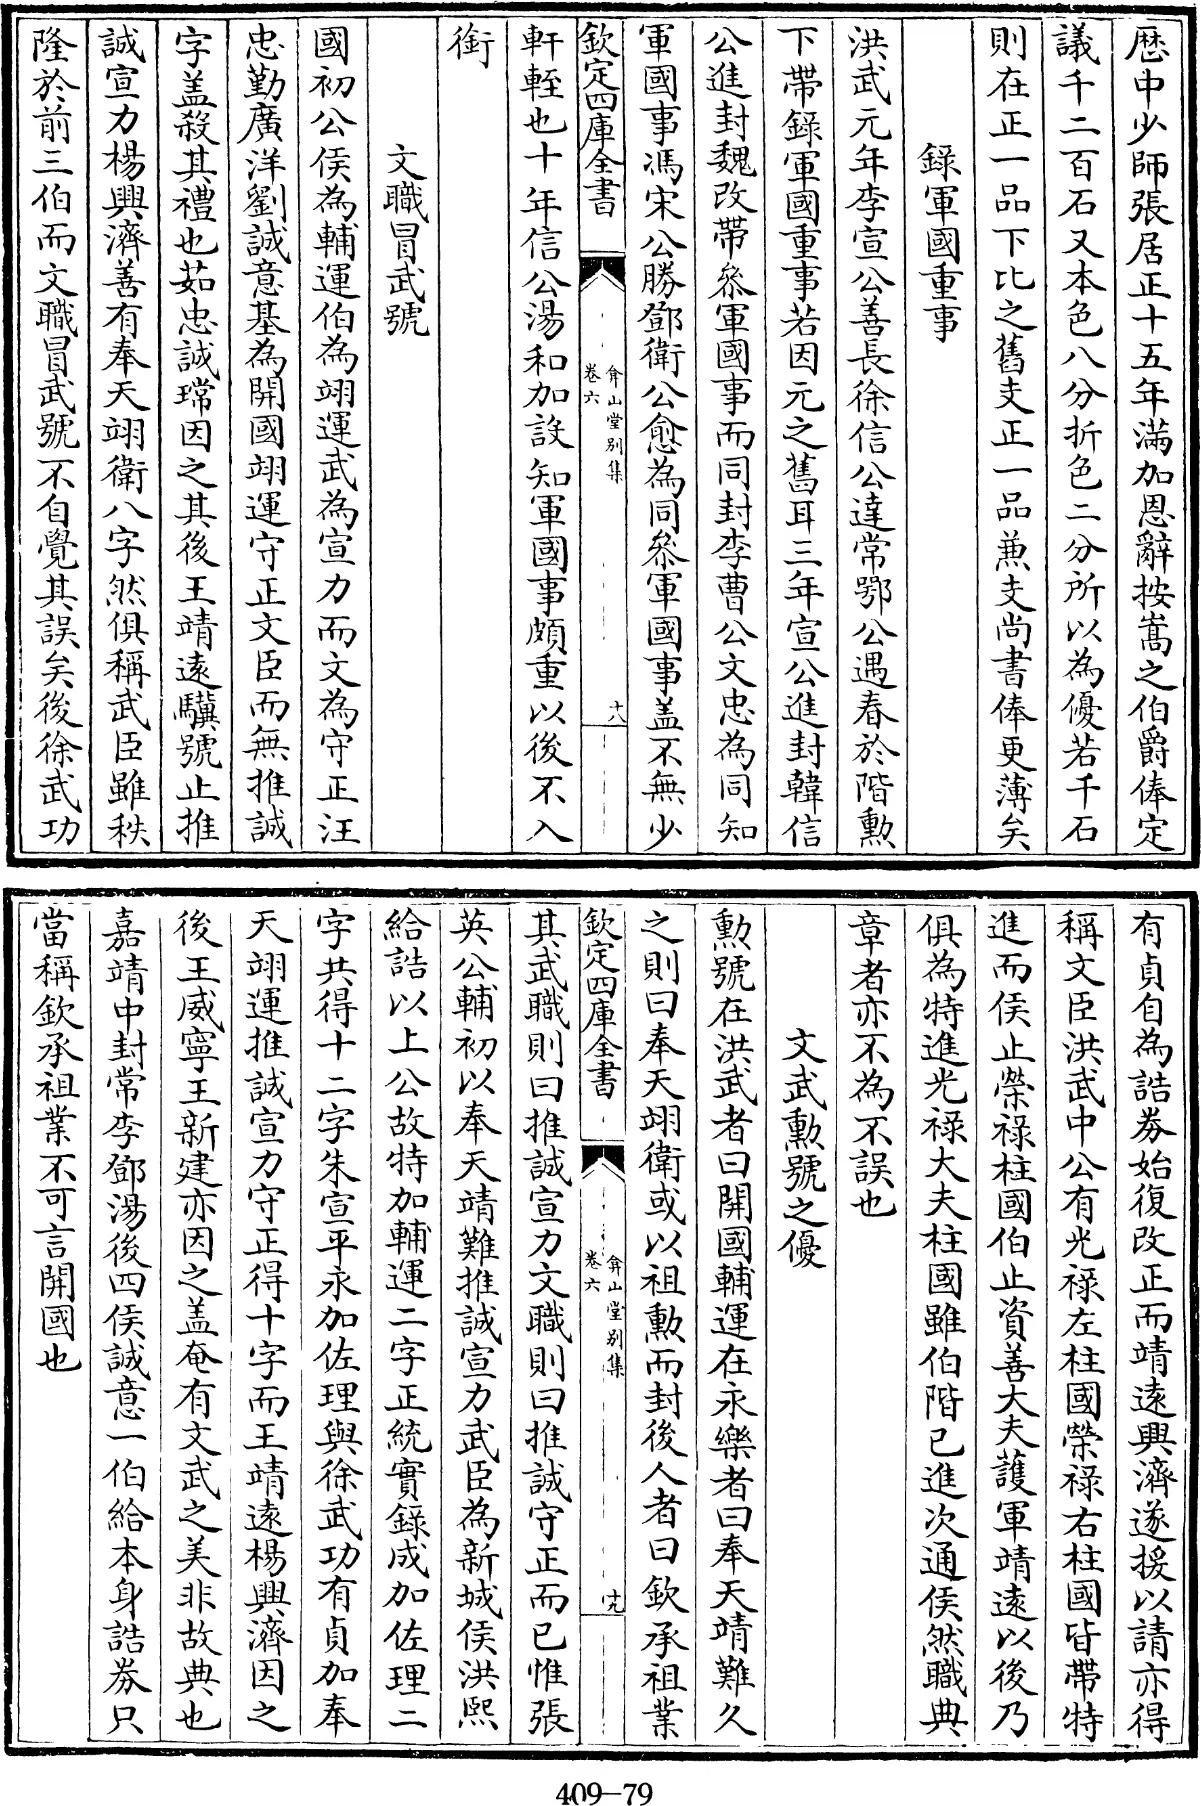 歴中少師張居正十五年滿加恩辭按嵩之伯爵俸定
議千二百石又本色八分折色二分所以為優若千石
則在正一品下比之舊支正一品兼支尚書俸更薄矣
錄軍國重事
洪武元年李宣公善長徐信公達常鄂公遇春於階勲
下帶錄軍國重事若因元之舊耳三年宣公進封韓信
公進封魏改帶叅軍國事而同封李曹公文忠為同知
軍國事馮宋公勝鄧衛公愈為同叅軍國事盖不無少
欽定四庫全書
弇山堂别集
卷六
十八
軒輊也十年信公湯和加設知軍國事頗重以後不入
銜
文職冒武號
國初公侯為輔運伯為翊運武為宣力而文為守正汪
忠勤廣洋劉誠意基為開國翊運守正文臣而無推誠
字盖殺其禮也茹忠誠瑺因之其後王靖逺驥號止推
誠宣力楊興濟善有奉天翊衛八字然俱稱武臣雖秩
隆於前三伯而文職冒武號不自覺其誤矣後徐武功
有貞自為誥劵始復改正而靖逺興濟遂援以請亦得
稱文臣洪武中公有光禄左柱國榮禄右柱國皆帶特
進而侯止榮祿柱國伯止資善大夫護軍靖逺以後乃
俱為特進光祿大夫柱國雖伯階已進次通侯然職典
章者亦不為不誤也
文武勲號之優
勲號在洪武者曰開國輔運在永樂者曰奉天靖難久
之則曰奉天翊衛或以祖勲而封後人者曰欽承祖業
欽定四庫全書
弇山堂别集
卷六
十九
其武職則曰推誠宣力文職則曰推誠守正而已惟張
英公輔初以奉天靖難推誠宣力武臣為新城侯洪熙
給誥以上公故特加輔運二字正統實錄成加佐理二
字共得十二字朱宣平永加佐理與徐武功有貞加奉
天翊運推誠宣力守正得十字而王靖逺楊興濟因之
後王威寧王新建亦因之盖奄有文武之美非故典也
嘉靖中封常李鄧湯後四侯誠意一伯給本身誥劵只
當稱欽承祖業不可言開國也
409-79